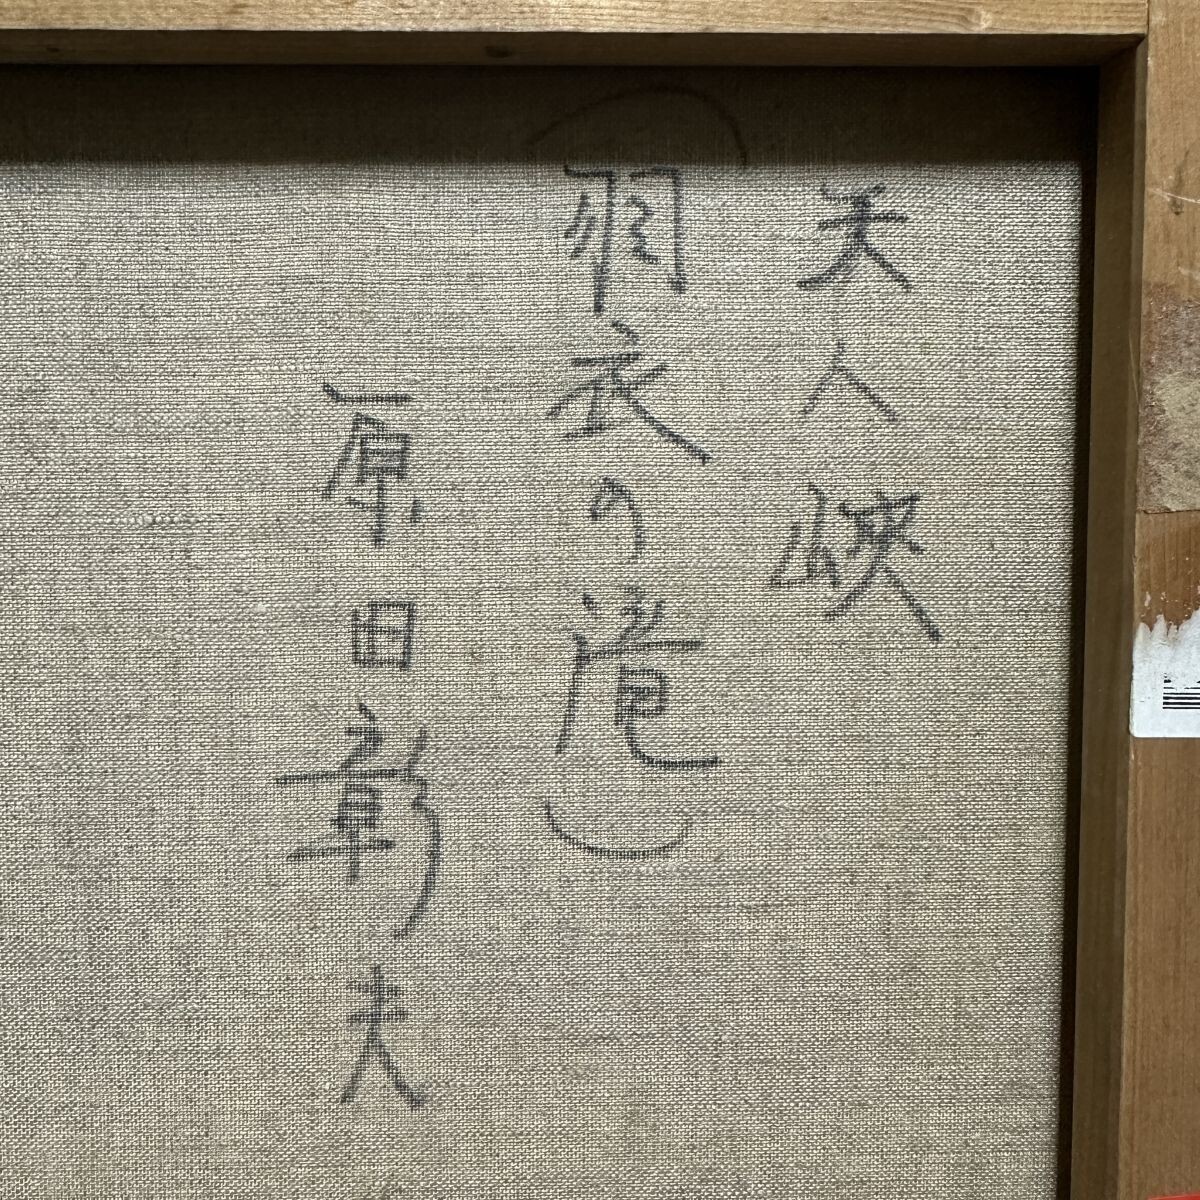 天人峡
(羽衣の滝)
原田彰夫